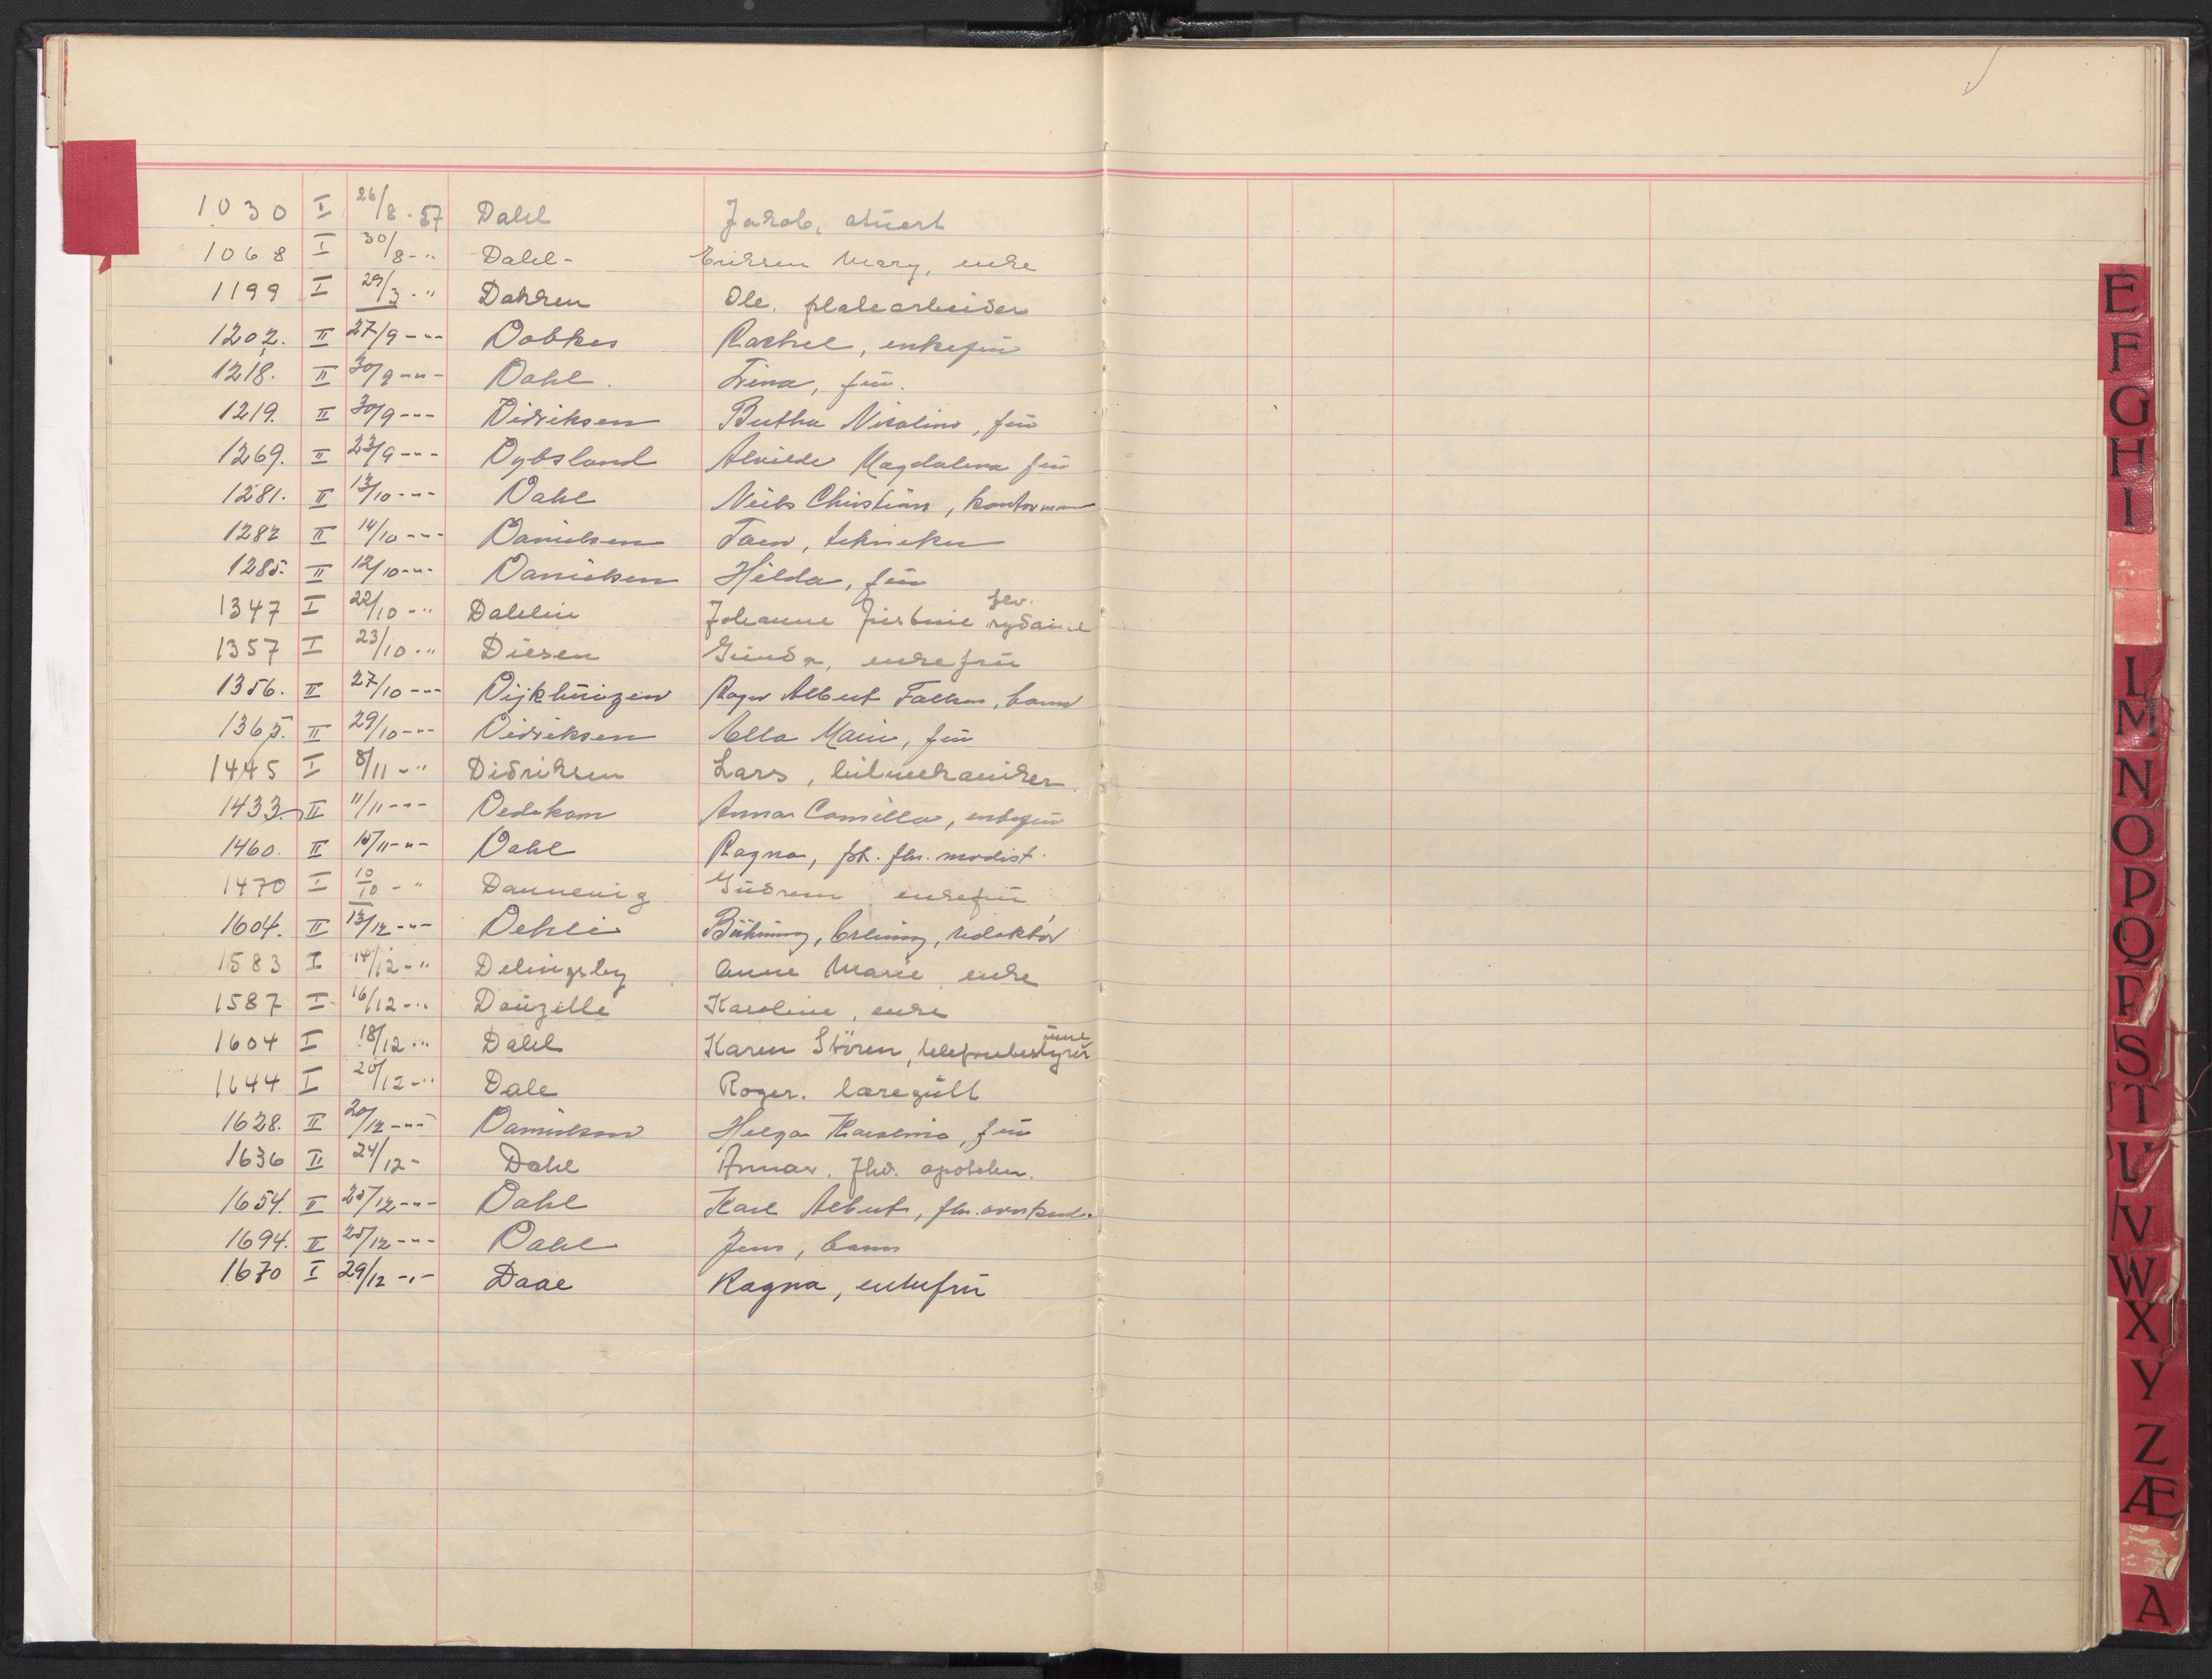 1030 I 26/8-57 Dahl Jakob, stuert
1068 I 30/8-" Dahl- Eriksen Mary, enke
1199 I 29/3-" Dakken Ole, platearbeider
1202. II 27/9-"- Dobkes Rachel, enkefrü
1218. II 30/9-"- Dahl. Trina, früe.
1219. II 30/9-"- Didriksen Bertha Nicoline, frü
1269. II 23/9-"- Dybsland Alvilde Magdalena frü
1281. II 13/10-"- Dahl Niels Christian, kontormann
1282 II 14/10-"- Danielsen Toen, tekniker
1285. II 12/10-"- Danielsen Hilda, frü
1347 I 22/10-" Dahlin Johanne Jüstine flv. sydame
1357 I 23/10-" Diesen Günda, enkefrü
1356. II 27/10-"- Dijkhüizen Roger Albert Falken, barn
1365. II 29/10-"- Didriksen Alla Marie, frü
1445 I 8/11-" Didriksen Lars, bilmekaniker
1433. II 11/11-"- Dedekam Anna Camilla, enkefrü
1460. II 15/11-"- Dahl Ragna, frk. fhv. modist.
1470 I 10/10-" Dannevig Güdrun enkefrü
1604. II 13/12-"- Oehli Bühring, Erling, redaktör
1583 I 14/12-" Delingsby Anne Marie, enke
1587 I 16/12-" Doüzette Karoline, enke
1604 I 18/12-" Dahl Karen Stören, telefonbestyrerinne
1644 I 20/12-" Dale Roger. læregütt
1628. II 20/12-"- Danielsen Helga Karoline, frü
1636 II 24/12- Dahl Annar. fhv. apoteker.
1654. II 25/12-"- Dahl Karl Albert, fhv.
1694. II 25/12-"- Dahl Jens, barn
1670 I 29/12-"- Daae Ragna, enkefrü
E
F
G
H
I
L
M
N
O
P
Q
R
S
T
U
V
W
X
Y
Z
Æ
A